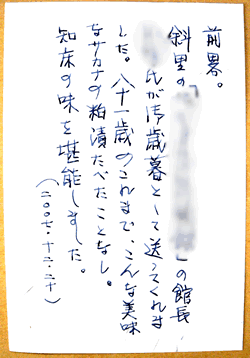 前畧。
斜里の「」の館長
氏が御歳暮として送ってくれま
した。八十一歳のこれまで、こんな美味
なサカナの粕漬たべたことなし。
知床の味を堪能しました。
(二〇〇七・十二・二十)